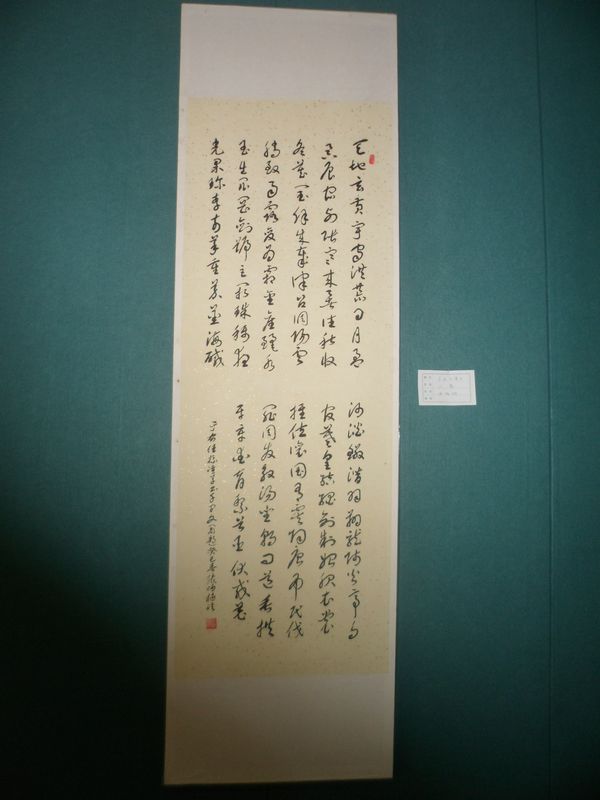 天地玄黃宇宙洪荒日月盈
昃辰宿列張寒來暑往秋收
冬藏閏餘成歲律呂調陽雲
騰致雨露結為霜金生麗水
玉出崑岡劍號巨闕珠稱夜
光果珍李柰菜重芥薑海鹹
河淡鱗潛羽翔龍師火帝鳥
官人皇始制文字乃服衣裳
推位讓國有虞陶唐弔民伐
罪周發殷湯坐朝問道垂拱
平章愛育黎首臣伏戎羌
千字文 癸巳春